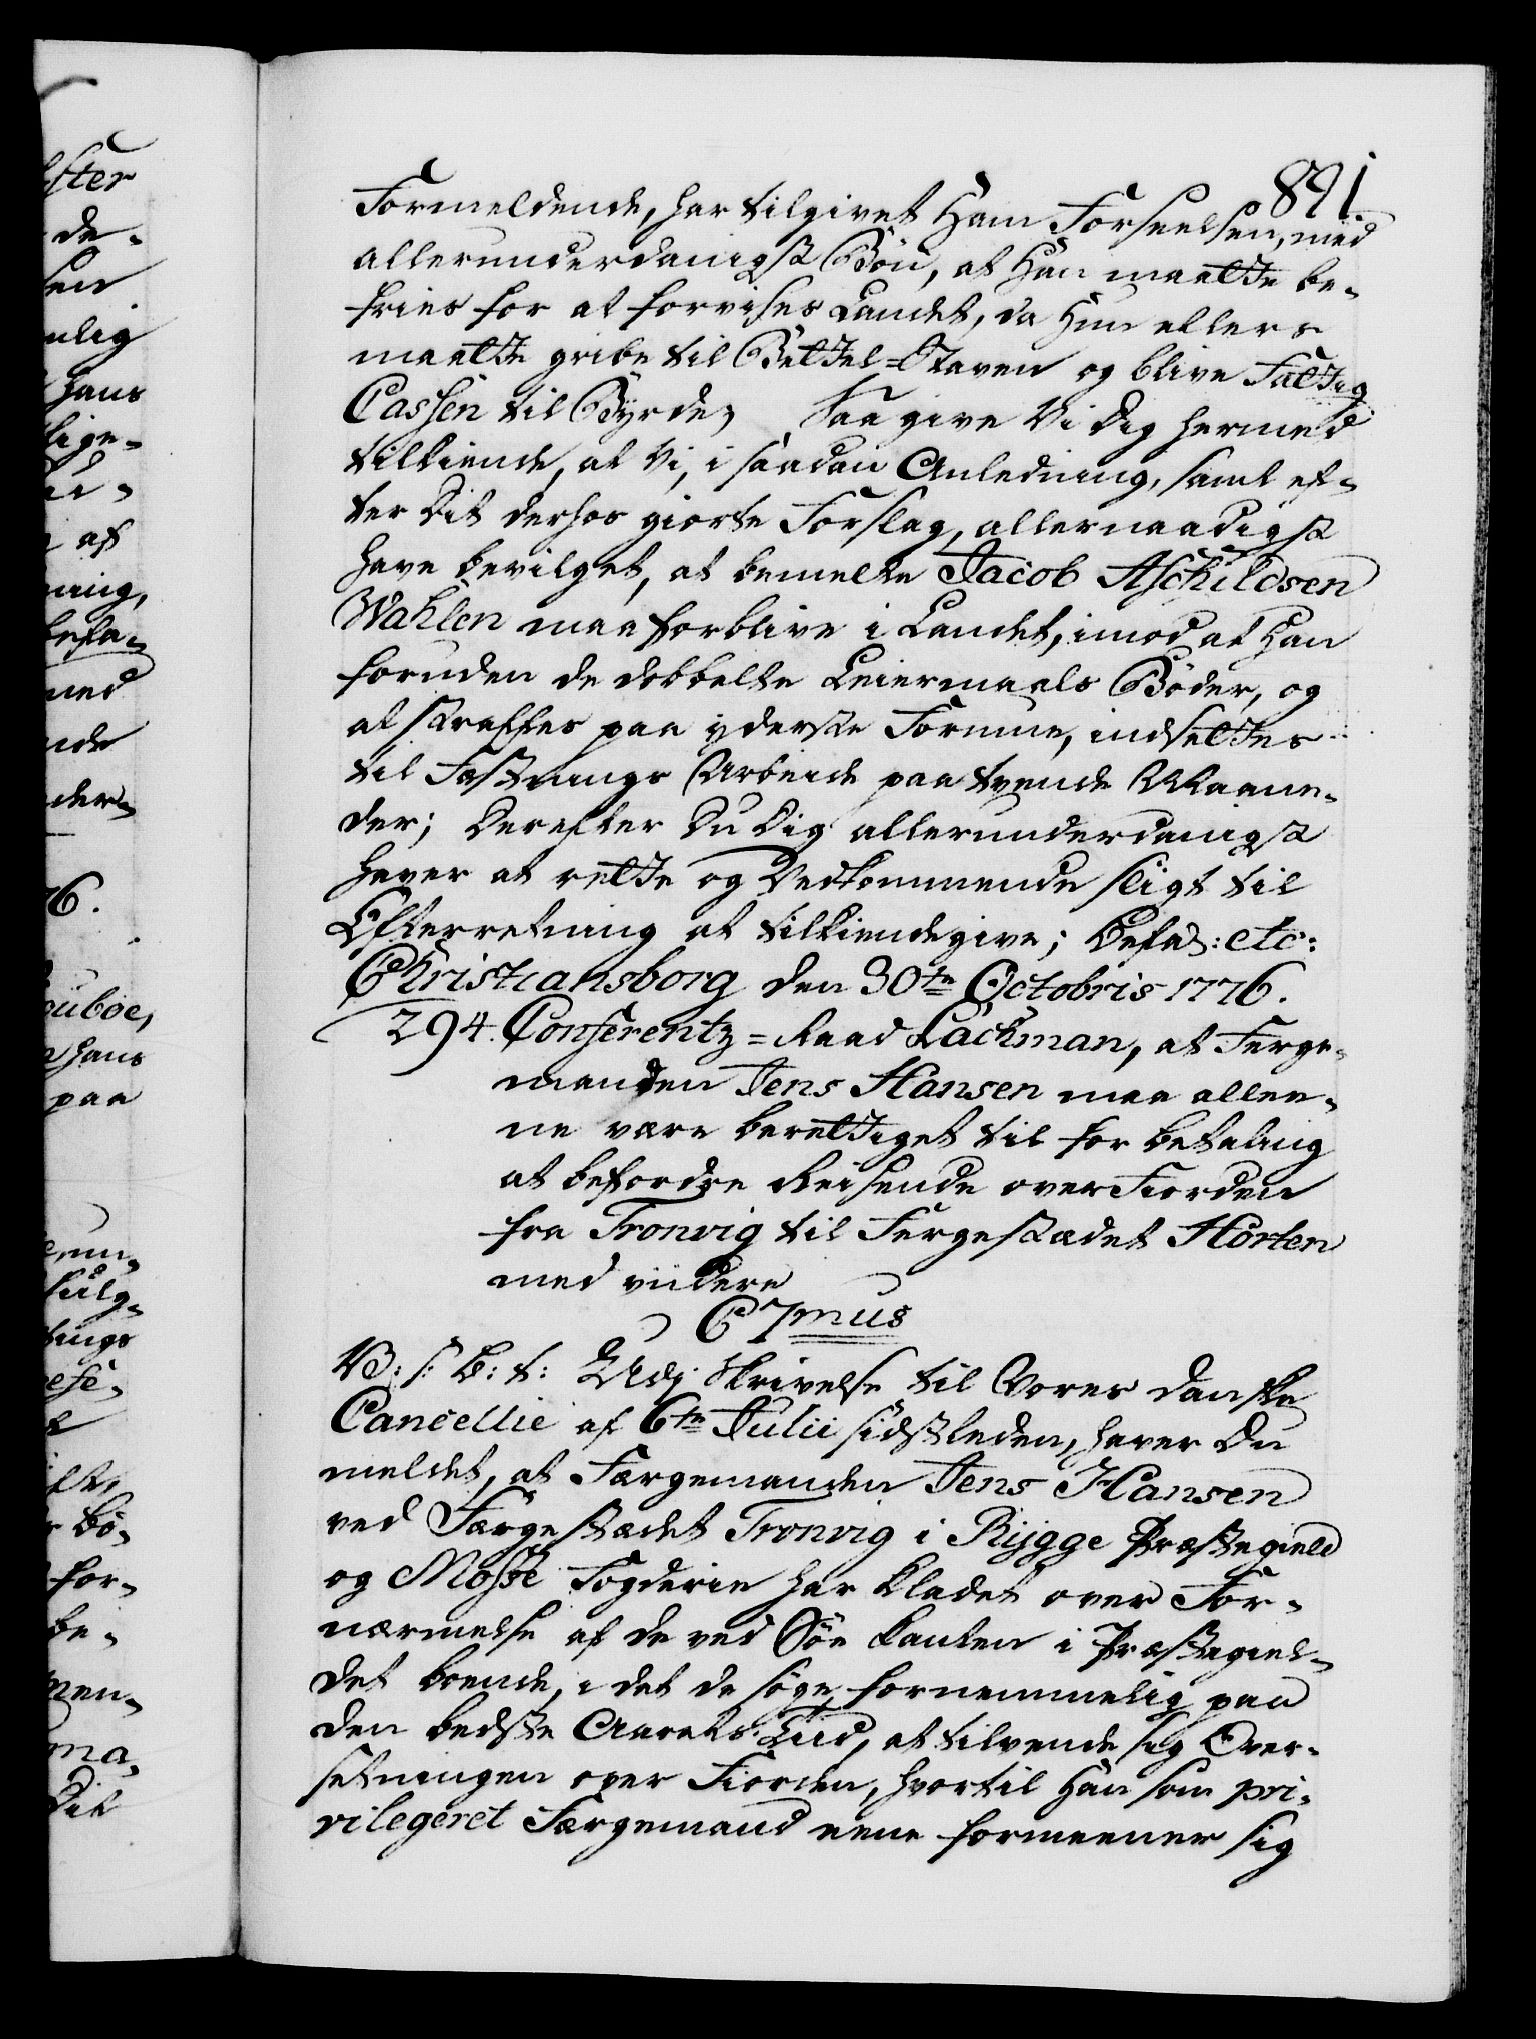 891.
Formeldende, har tilgivet Ham Forseelsen, med
allerunderdanigst Bön, at Han maatte be-
fries for at forvises Landet, da Hun ellers
maatte gribe til Bettel-Staven og blive Fattig
Cassen til Byrde; Saa give Vi Dig hermed
tilkiende, at Vi, i saadan Anledning, samt ef-
ter Dit derhos giorte Forslag, allernaadigst
have bevilget, at bemelte Jacob Aschildsen
Wahlen maa forblive i Landet, imod at Han
foruden de dobbelte Leiermaals Böder, og
at straffes paa yderste Formue, indsettes
til Fæstnings Arbeide paa tvende Maane-
der; Derefter Du Dig allerunderdanigst
haver at rette og Vedkommende sligt til
Efterretning at tilkiendegive; Befal: etc:
Christiansborg den 30te Octobris 1776.
294. Conferentz-Raad Lachman, at Ferge-
manden Jens Hansen maa allee-
ne være berettiget til for betaling
at befordre Reisende over Fiorden
fra Tronvig til Fergestædet Horten
med viidere
C 7mus
V: s: B: t: Udj Skrivelse til Vores danske
Cancellie af 6te Julii sidstleden, haver Du
meldet, at Færgemanden Jens Hansen
ved Færgestædet Tronvig i Rygge Præstegield
og Mosse Fogderie har klaget over For-
nærmelse af de ved Söe Kanten i Præstegiel-
det boende, i det de söge, fornemmelig paa
den bedste Aarets Tiid, at tilvende sig Over-
setningen over Fiorden, hvortil Han som pri-
vilegeret Færgemand eene formeener sig